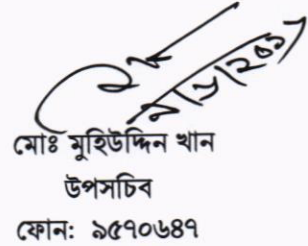 মোঃ মুহিউদ্দিন খান
উপসচিব
ফোন: ৯৫৭০৬৪৭